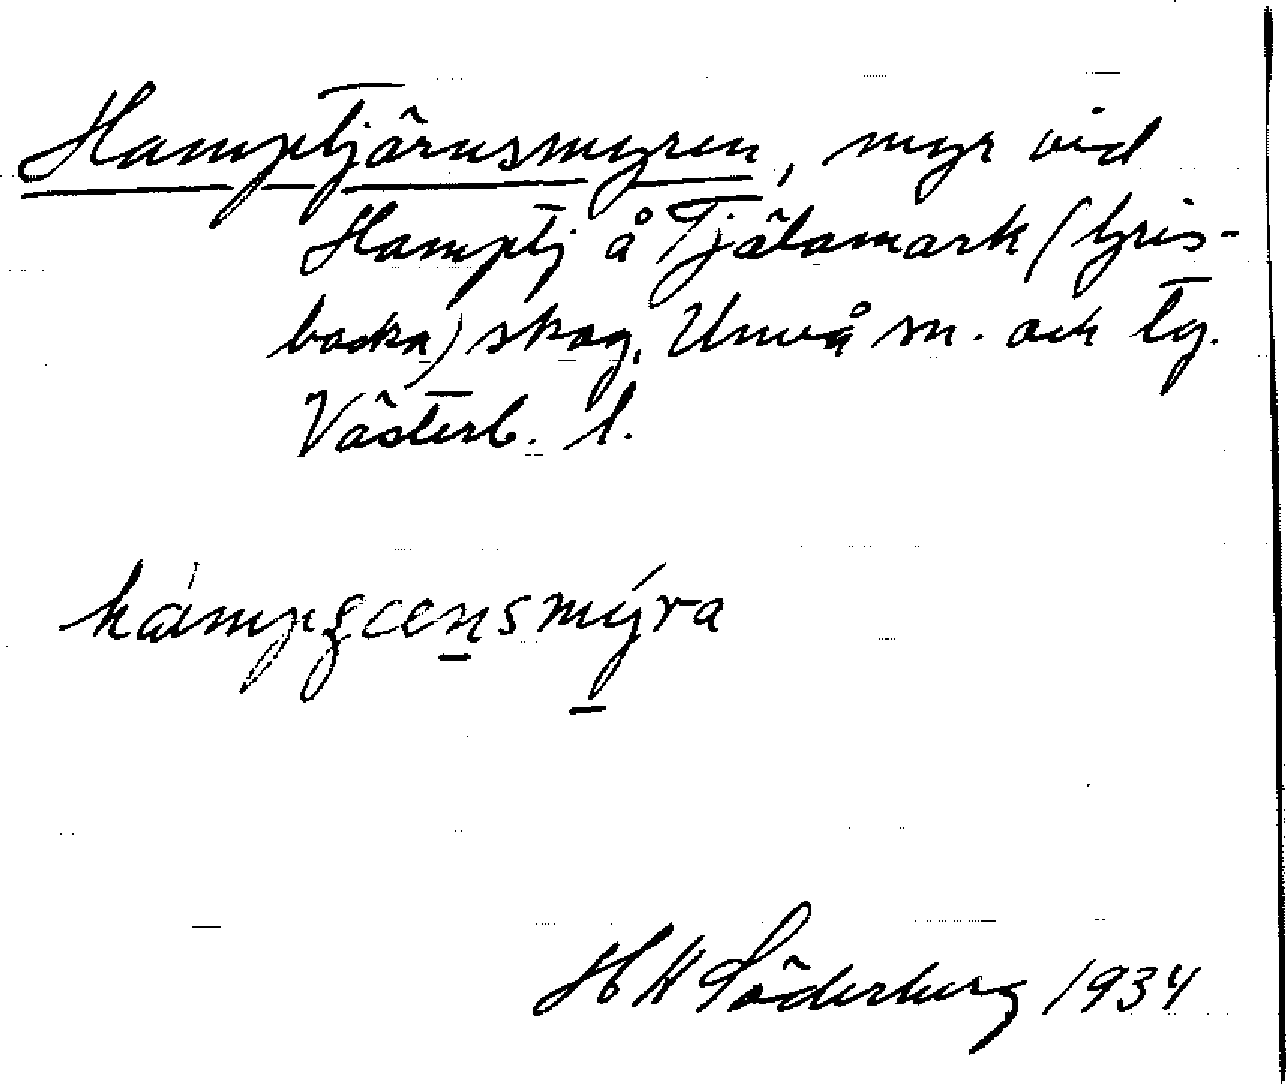 Hamptjärnsmyren, myr vid
Hamptj å Tjälamark (Gris-
backa) skog, Umeå sn. och tg.
Västerb. l.
H W Söderberg 1934